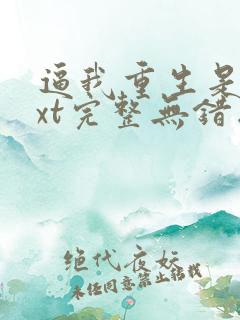 逼我重生是
xt完整無錯
绝代夜妖
未经同意禁止转载